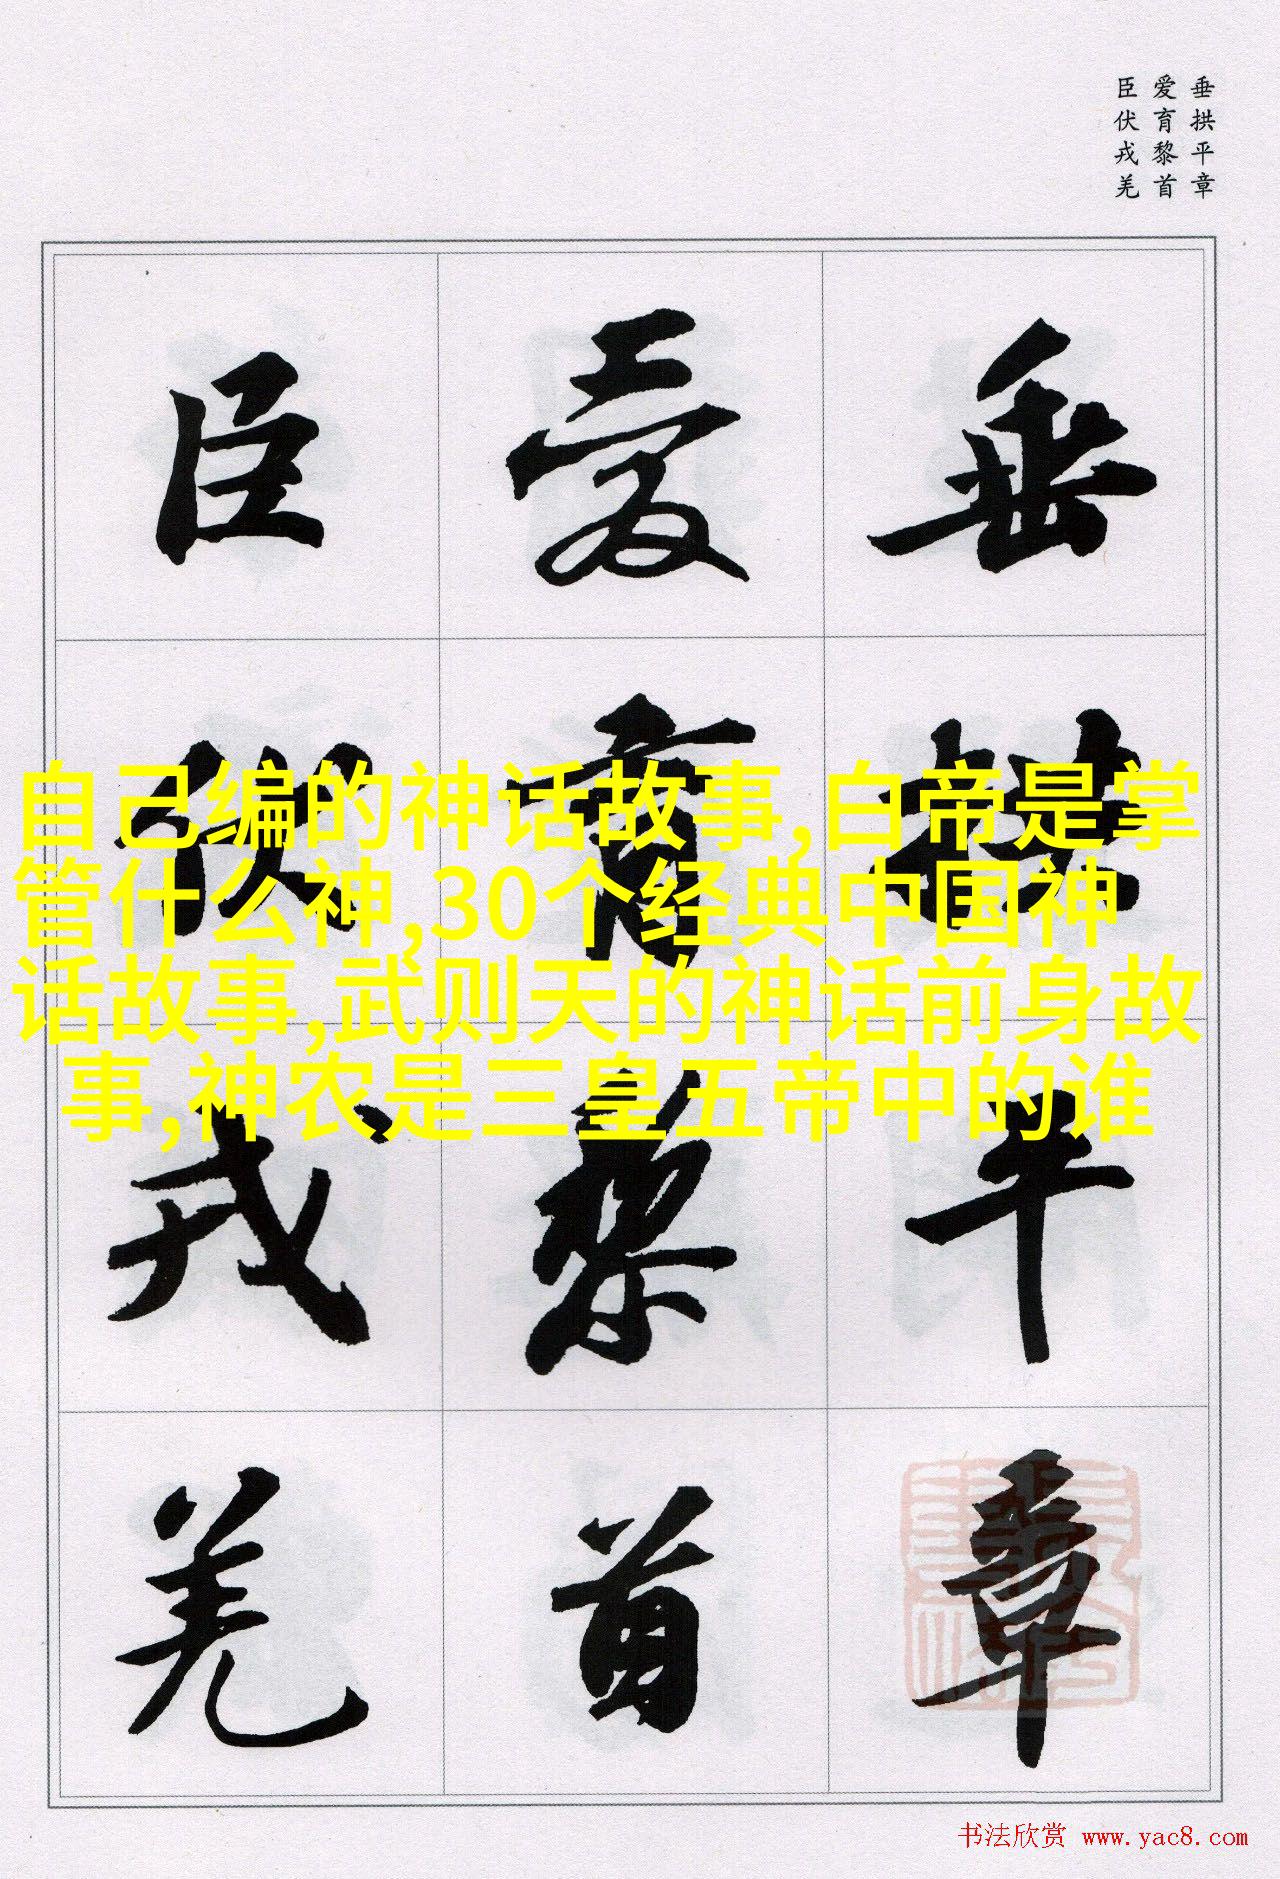 垂拱平章
爱育黎首
臣伏戎羌
垂拱平章
爱育黎首
臣伏戎羌
自己编的神话故事,白帝是掌
管什么神,30个经典中国神
话故事,武则天的神话前身故
事,神农是三皇五帝中的谁
书法欣赏 www.yac8.com